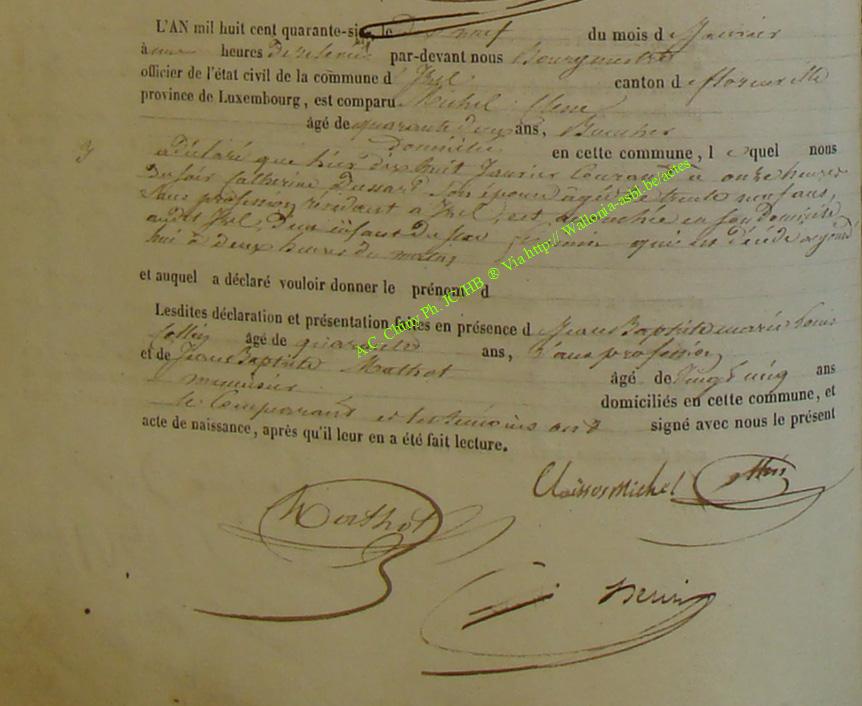 L'AN mil huit cent quarante-six, le dix neuf du mois de Janvier
à onze heures par-devant nous Bourgmestre
officier de l'état civil de la commune d'Izel canton de florenville
province de Luxembourg, est comparu Michel
âgé de quarante deux ans,
domicilié en cette commune, lequel nous
3 a déclaré que hier dix huit Janvier Courant à onze heures
du soir Catherine Dussart Son épouse âgée de trente neuf ans,
Sans profession résidant à Izel, est accouchée en son domicile
audit Izel, d'un enfant du sexe qui est décédé aujourd
hui à deux heures du matin
et auquel a déclaré vouloir donner le prénom d
Lesdites déclaration et présentation faites en présence de Jean Baptiste marie
Collin âgé de quarante ans, Sans profession
et de Jean Baptiste Mathot âgé de vingt cinq ans
menuisier domiciliés en cette commune, et
le Comparant et les témoins ont signé avec nous le présent
acte de naissance, après qu'il leur en a été fait lecture.
Michel
Mathot
A.C. Chiny Ph. JC/HB ® Via http:// Wallonia-asbl.be/actes